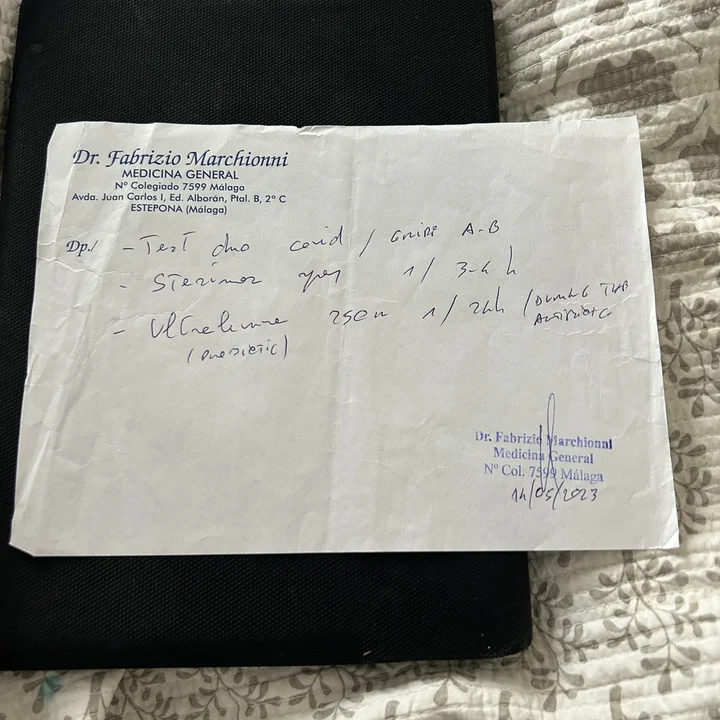 Dr. Fabrizio Marchionni
MEDICINA GENERAL
Nº Colegiado 7599 Málaga
Avda. Juan Carlos I, Ed. Alborán, Ptal. B, 2º C
ESTEPONA (Málaga)
Dp./ - Test duo covid / GRIPE A-B
- Sterimar 1/ 3-4 h
- Ultralevure 250 1/ 24h / DURING THE
(PROBIOTIC) ANTIBIOTIC
Dr. Fabrizio Marchionni
Medicina General
Nº Col. 7599 Málaga
14/05/2023